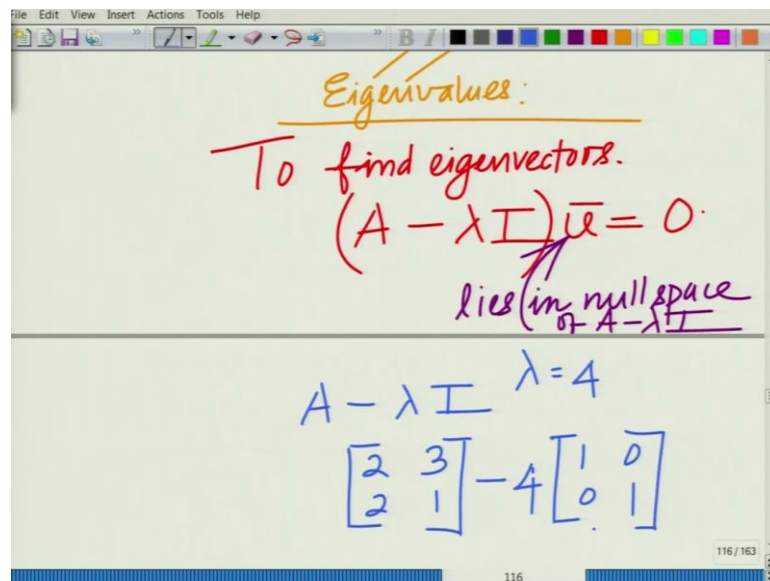 File Edit View Insert Actions Tools Help
B I
Eigenvalues:
To find eigenvectors.
(A − λI)ū = 0.
lies in null space
of A − λI
A − λI λ = 4
[2 3] − 4 [1 0]
[2 1] [0 1]
116 / 163
116